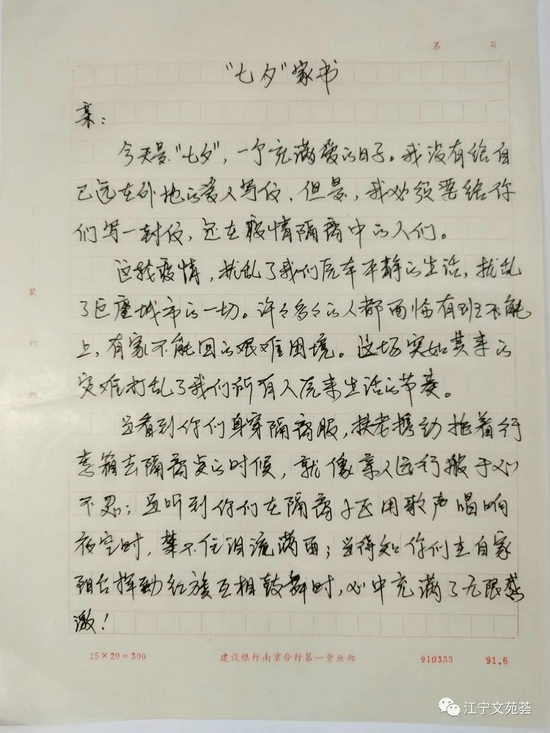 第 页
“七夕”家书
亲:
今天是“七夕”，一个充满爱的日子。我没有给自
己远在外地的爱人写信，但是，我必须要给你
们写一封信，还在疫情隔离中的人们。
这轮疫情，扰乱了我们原本平静的生活，扰乱
了这座城市的一切。许许多多的人都面临有班不能
上，有家不能回的艰难困境。这场突如其来的
灾难打乱了我们所有人原来生活的节奏。
当看到你们身穿隔离服，扶老携幼拖着行
李箱去隔离点的时候，就像亲人远行般于心
不忍；当听到你们在隔离小区用歌声唱响
夜空时，禁不住泪流满面；当得知你们在自家
阳台挥动红旗互相鼓舞时，心中充满了无限感
激！
装 订
15×20=300 建设银行南京分行第一营业部 910333 91.6
江宁文苑荟